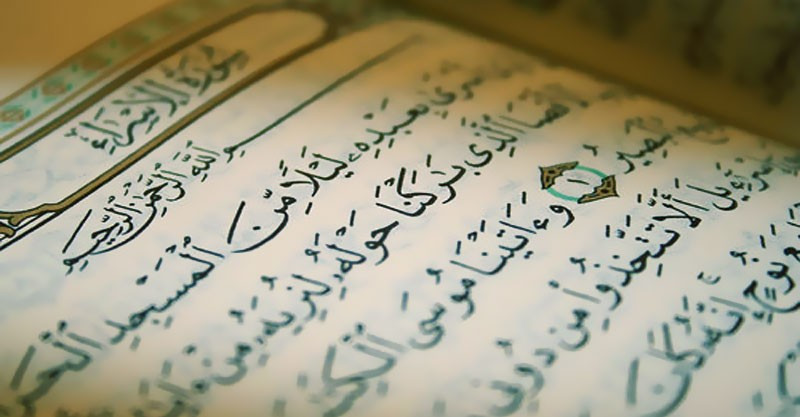 سُورَةُ الْإِسْرَاءِ
بِسْمِ اللَّهِ الرَّحْمَٰنِ الرَّحِيمِ
أَسْرَىٰ بِعَبْدِهِۦ لَيْلًا مِّنَ ٱلْمَسْجِدِ ٱلْحَرَ
ٱلَّذِى بَٰرَكْنَا حَوْلَهُۥ لِنُرِيَهُۥ مِنْ ءَايَٰ
ٱلْبَصِيرُ ١ وَءَاتَيْنَا مُوسَى ٱلْكِتَٰ
أَلَّا تَتَّخِذُوا۟ مِن دُونِى
مَعَ نُوحٍ إِنَّهُۥ كَانَ